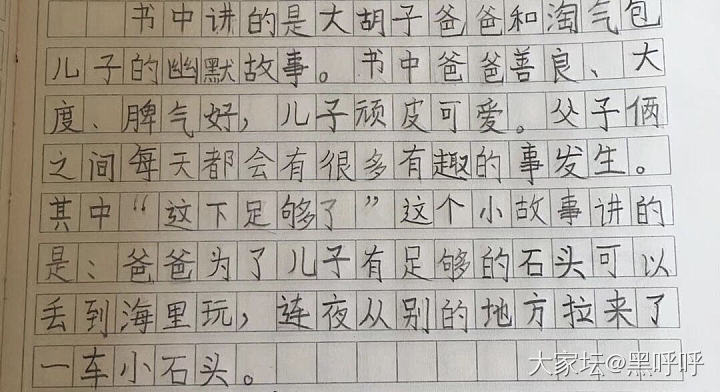 书中讲的是大胡子爸爸和淘气包
儿子的幽默故事。书中爸爸善良、大
度、脾气好，儿子顽皮可爱。父子俩
之间每天都会有很多有趣的事发生。
其中“这下足够了”这个小故事讲的
是：爸爸为了儿子有足够的石头可以
丢到海里玩，连夜从别的地方拉来了
一车小石头。
大家坛@黑呼呼